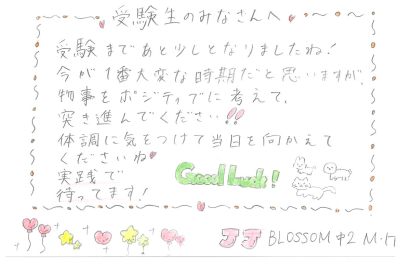 受験生のみなさんへ
受験まであと少しとなりましたね!
今が1番大変な時期だと思いますが、
物事をポジティブに考えて、
突き進んでください!!
体調に気をつけて当日を向かえて
くださいね
実践で
待ってます!
Good Luck!
JJ BLOSSOM 中2 M・H